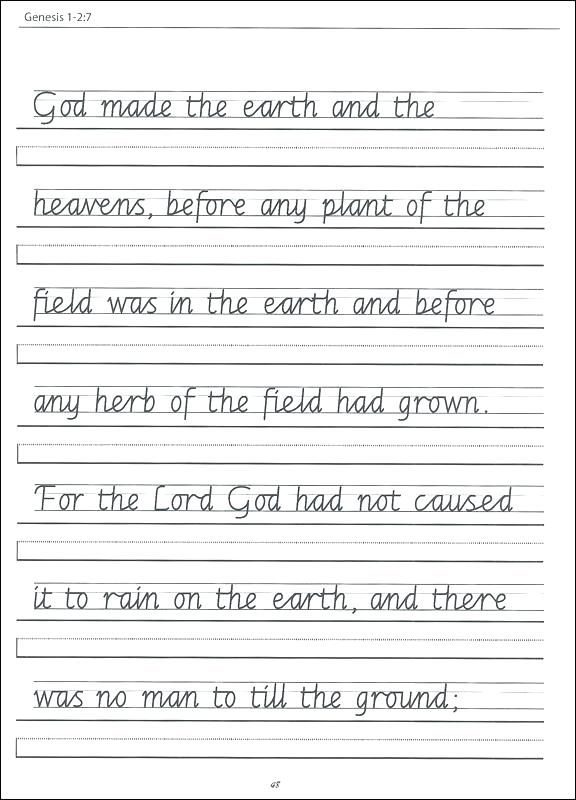 Genesis 1-2:7
God made the earth and the
heavens, before any plant of the
field was in the earth and before
any herb of the field had grown.
For the Lord God had not caused
it to rain on the earth, and there
was no man to till the ground;
48